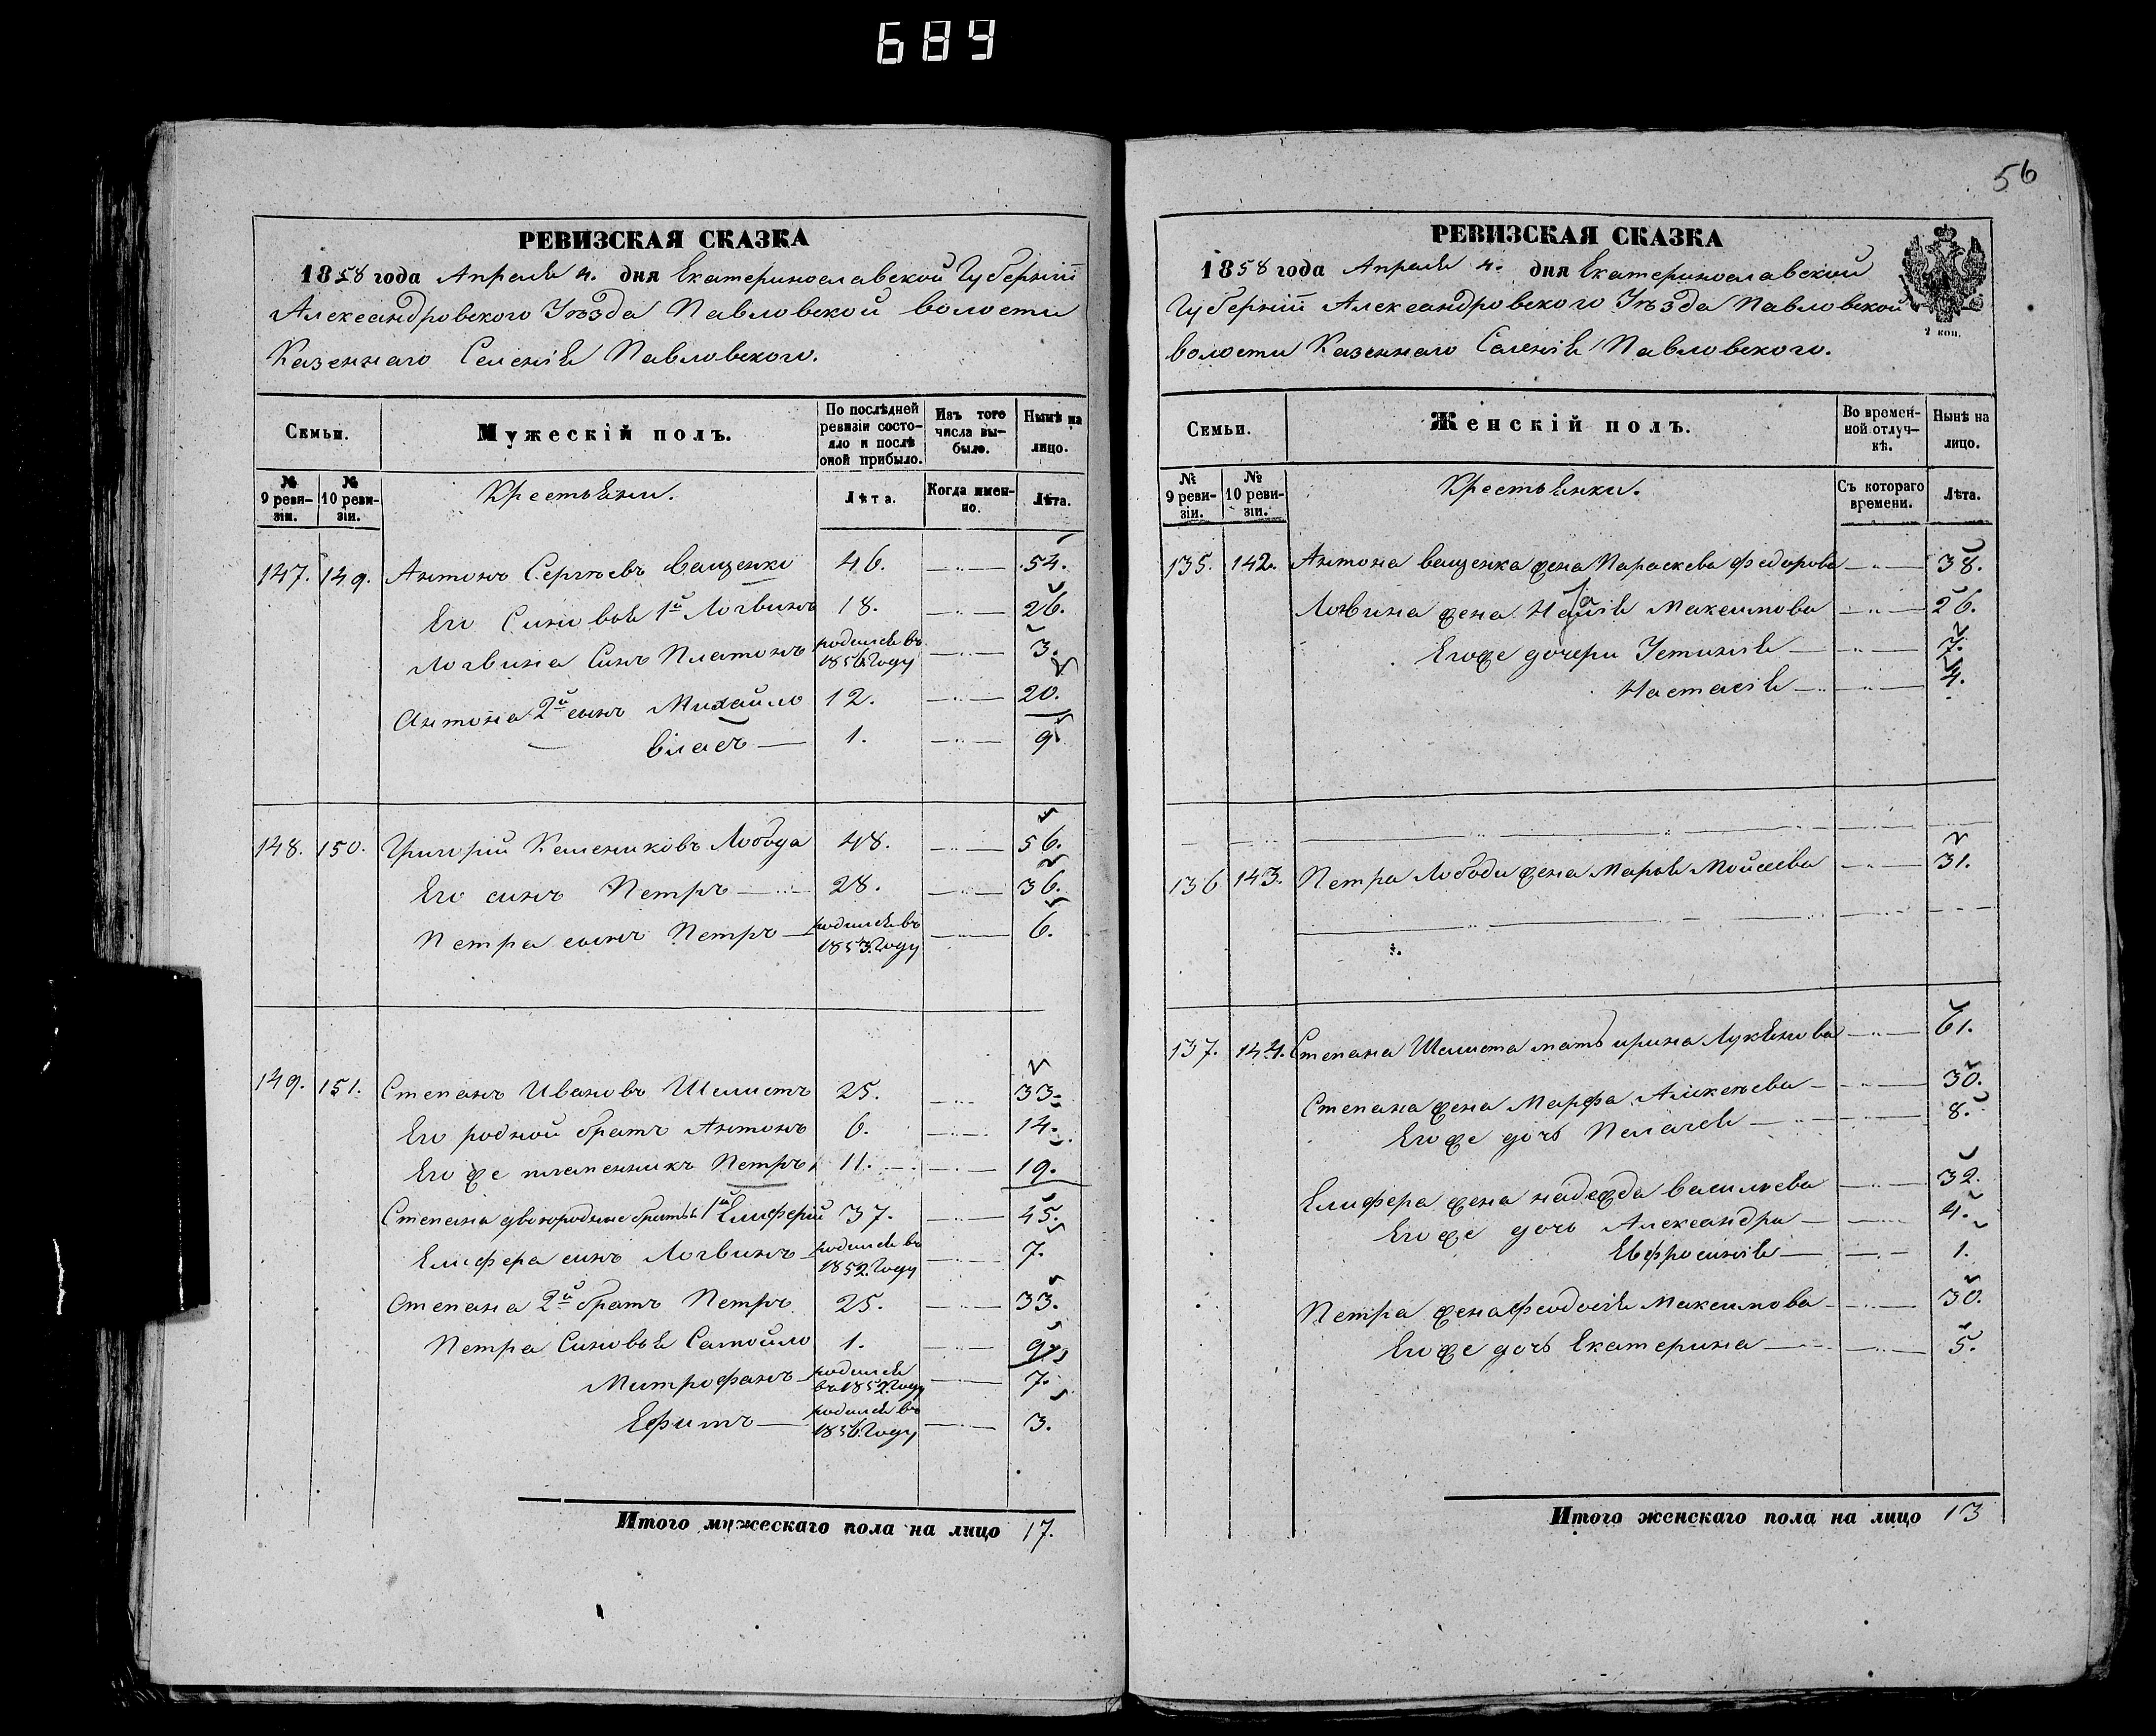 689
РЕВИЗСКАЯ СКАЗКА
1858 года Апреля 4. дня Екатеринославской Губерніи
Александровского Уѣзда Павловской волости
Казеннаго Селенія Павловского.
Семьи. Мужескій полъ. По послѣдней ревизіи состояло и послѣ оной прибыло. Изъ того числа выбыло. Нынѣ на лицо.
№ 9 ревизіи. № 10 ревизіи. Крестьяни. Лѣта. Когда именно. Лѣта.
147. 149. Антонъ Сергѣевъ Ващенко 46. 54.
Его Синовья 1й Логвинъ 18. 26.
Логвина Синъ Платонъ родился въ 1856 Году 3.
Антона 2й сынъ Михайло 12. 20.
Власъ 1. 9.
148. 150. Григорий Лобода 48. 56.
Его синъ Петръ 28. 36.
Петра сынъ Петръ родился въ 1853. Году 6.
149. 151. Степанъ Ивановъ Шелистъ 25. 33.
Его родной братъ Антонъ 6. 14.
Его же племенникъ Петръ 11. 19.
Степана двоюродные братья 1й Елиферий 37. 45.
Елифера синъ Логвинъ родился въ 1852. Году 7.
Степана 2й братъ Петръ 25. 33.
Петра Синовья Самойло 1. 9.
Митрофанъ родился въ 1852. Году 7.
Ефимъ родился въ 1856 Году 3.
Итого мужескаго пола на лицо 17.
56
РЕВИЗСКАЯ СКАЗКА
1858 года Апреля 4. дня Екатеринославской
Губерніи Александровского Уѣзда Павловской
волости Казеннаго Селенія Павловского.
коп.
Семьи. Женскій полъ. Во временной отлучкѣ. Нынѣ на лицо.
№ 9 ревизіи. № 10 ревизіи. Крестьянки. Съ котораго времени. Лѣта.
135. 142. Антона Ващенка жена Параскева Федорова 38.
Логвина жена Максимова 26.
Егоже дочери Устинія 7.
Настасія 4.
136 143. Петра Лободи жена Марья Мойсеева 31.
137. 144. Степана Шелиста мать Ирина Лукянова 61.
Степана жена Марфа Алексеева 30.
Его же дочь Пелагея 8.
Елифера жена надежда Васильева 32.
Его же дочь Александра 4.
Евфросинія 1.
Петра жена Феодосія Максимова 30.
Его же дочь Екатерина 5.
Итого женскаго пола на лицо 13